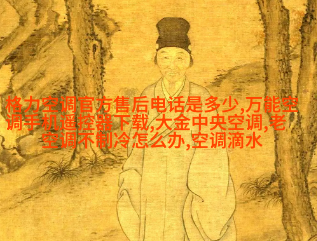 格力空调官方售后电话是多少,万能空
调手机遥控器下载,大金中央空调,老
空调不制冷怎么办,空调滴水